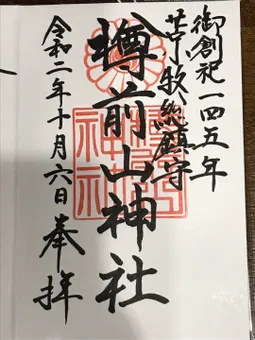 御創祀一四五年
苫小牧總鎮守
樽前山神社
令和二年十月六日奉拝